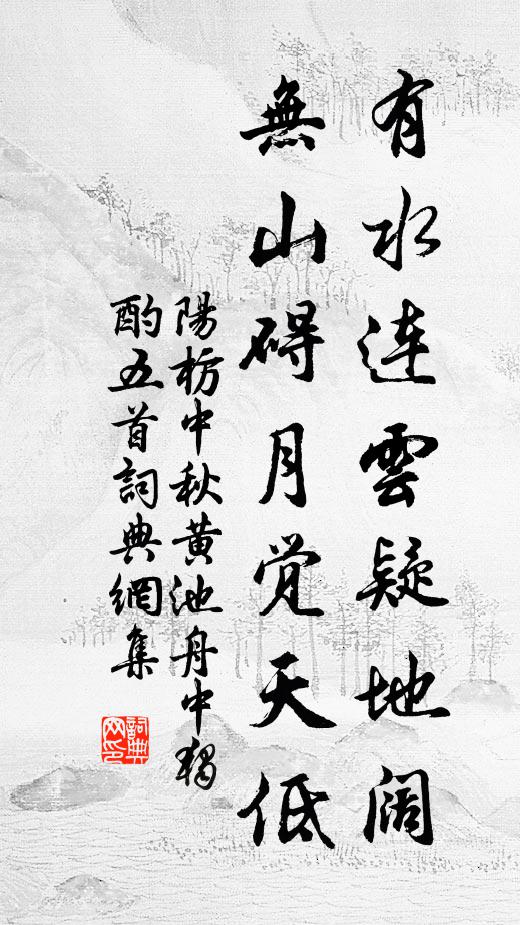 有水連雲疑地阔
無山碍月觉天低
陽枋中秋黄池舟中独
酌五首詞典網集
詞典網印